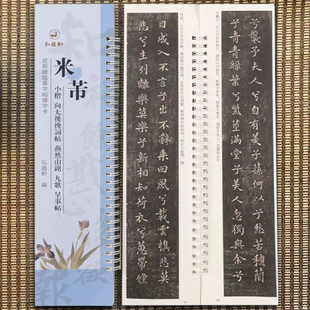 弘蕴轩
近距离临摹字帖练字卡
米芾
小楷 向太后挽词帖 燕然山铭 九歌 呈事帖
弘蕴轩 编
予襲夫人兮自有美子蓀何以兮愁苦穐蘭
兮青青綠葉兮紫莖滿堂兮美人忽獨與余兮
目成入不言兮出不辭乘回風兮載雲旗悲莫
悲兮生別離樂莫樂兮新相知荷衣兮蕙帶儵